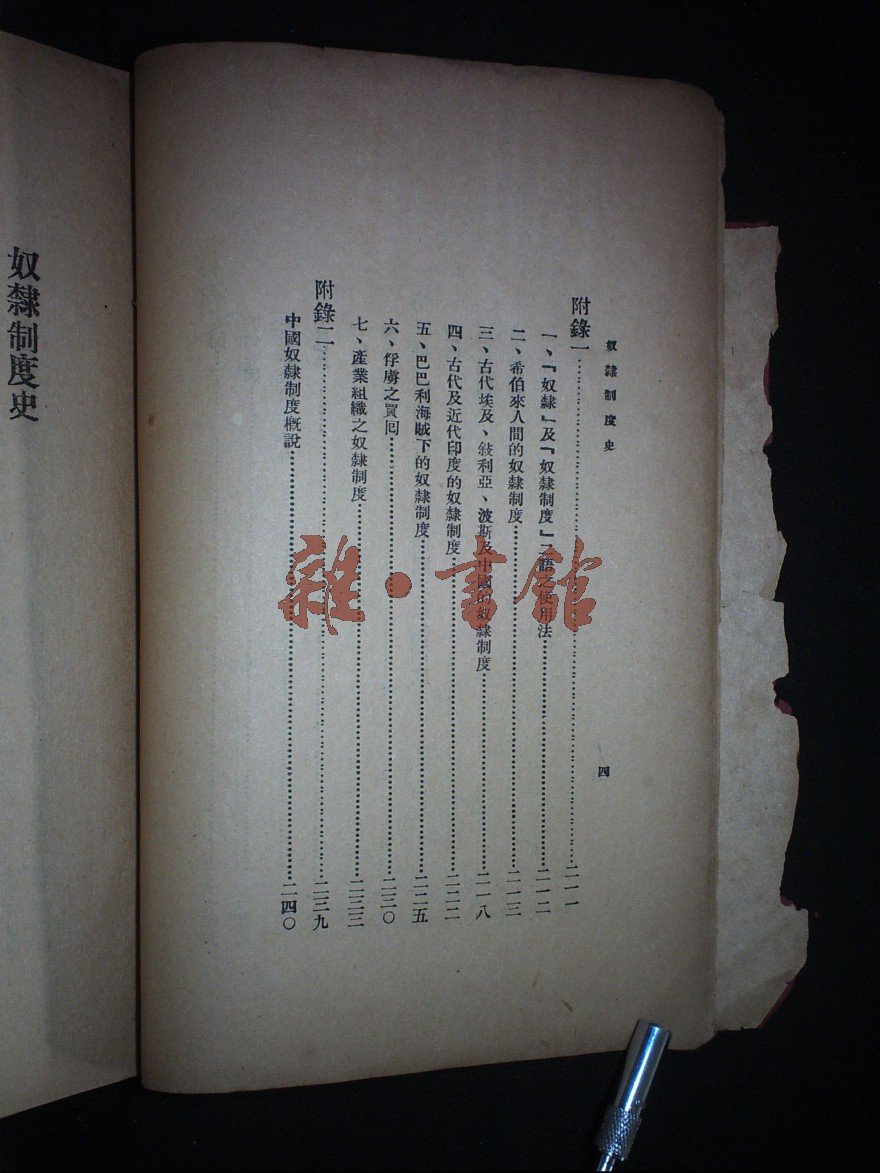 奴隸制度史
四
附錄一……二一一
一、「奴隸」及「奴隸制度」二語之使用法……二一二
二、希伯來人間的奴隸制度……二一三
三、古代埃及、敍利亞、波斯及中國的奴隸制度……二一八
四、古代及近代印度的奴隸制度……二二二
五、巴巴利海賊下的奴隸制度……二二五
六、俘虜之買囘……二三〇
七、產業組織之奴隸制度……二三三
附錄二……二三九
中國奴隸制度概說……二四〇
奴隸制度史
雜·書館